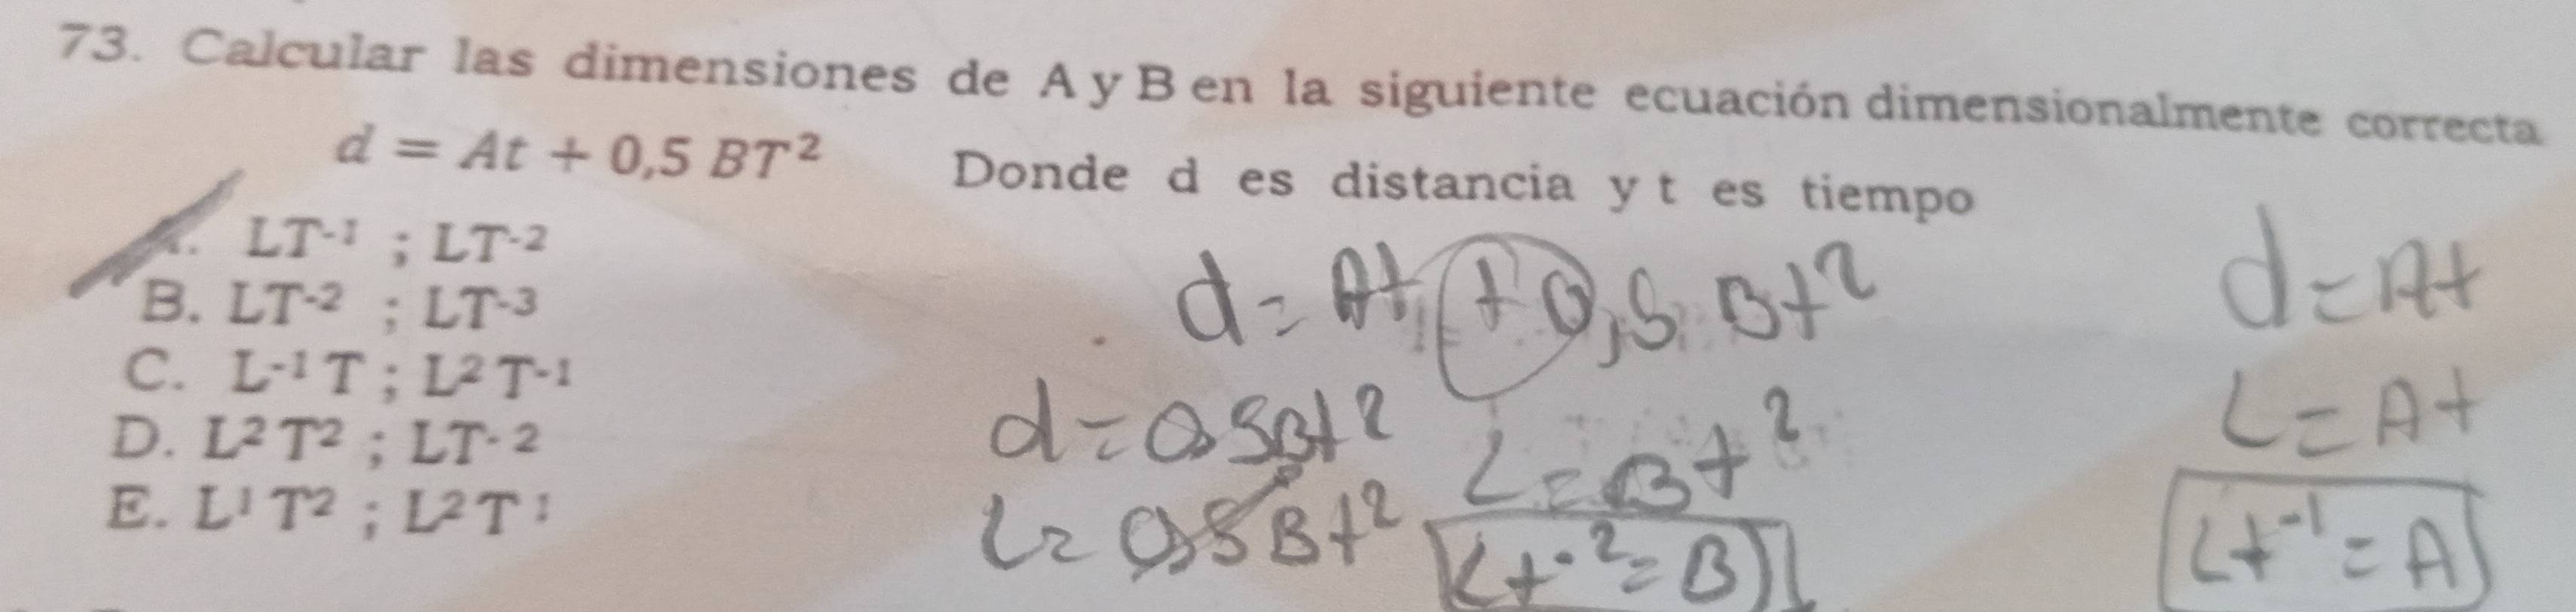 73. Calcular las dimensiones de A y B en la siguiente ecuación dimensionalmente correcta
d = At + 0,5 BT² Donde d es distancia y t es tiempo
A. LT-1 ; LT-2
B. LT-2 ; LT-3
C. L-1 T ; L2 T-1
D. L2 T2 ; LT-2
E. L1 T2 ; L2 T1
d = At + 0,5 Bt²
d = 0,5Bt²
L = 0,5Bt²
L = Bt²
Lt-2 = B
d = At
L = At
Lt-1 = A